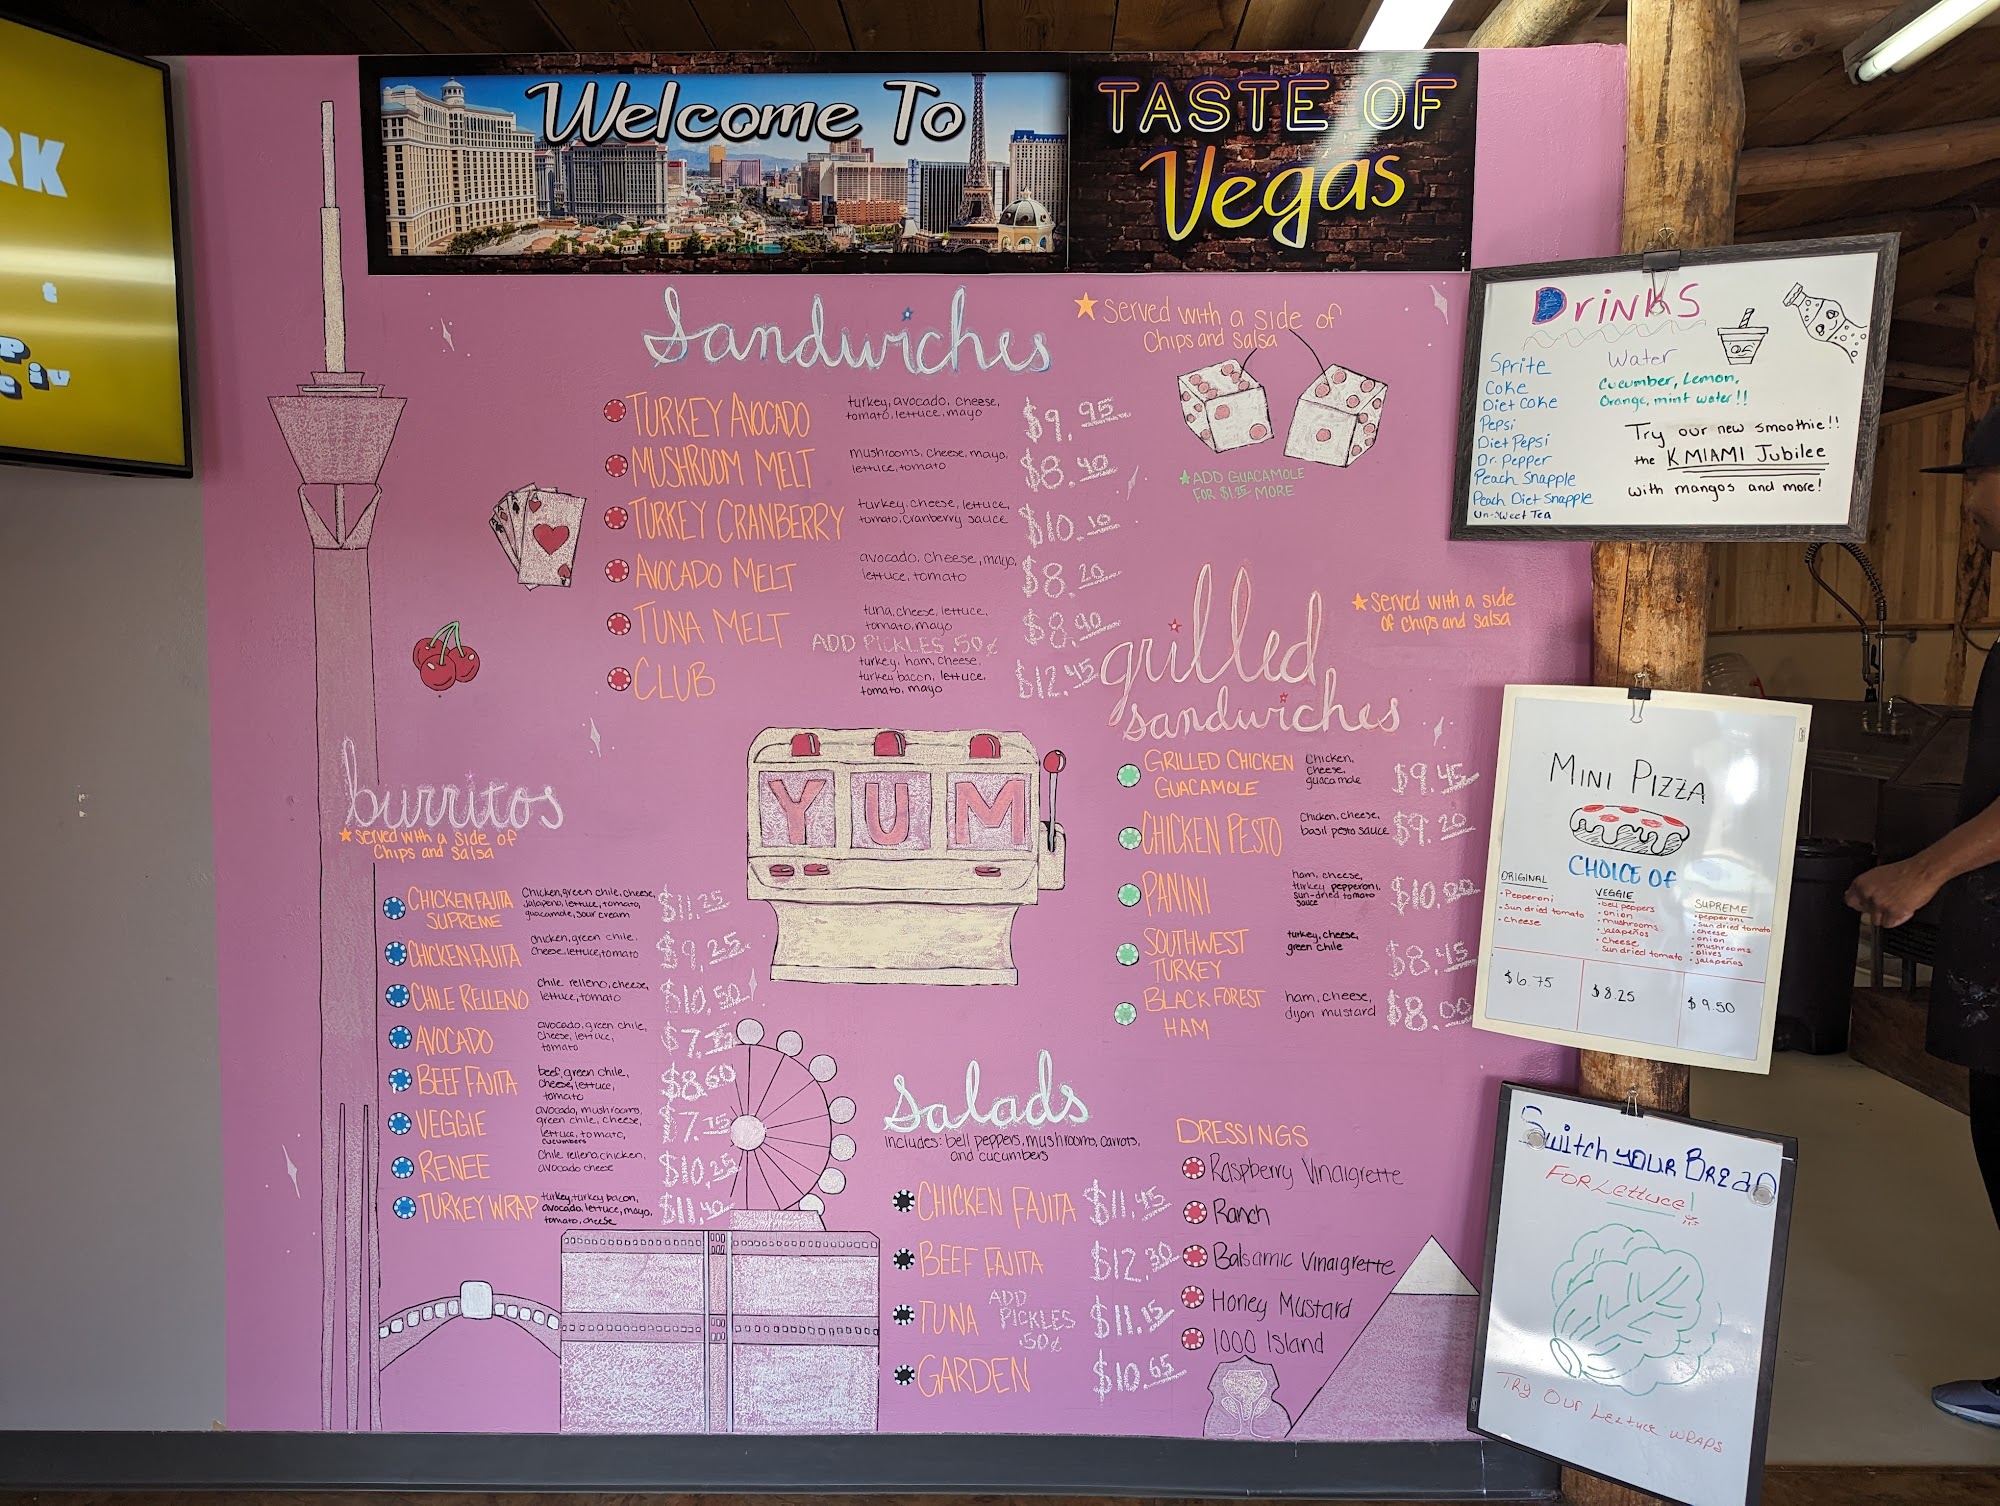 RK
t
P
c iv
Welcome To
TASTE OF
Vegas
Sandwiches
★ Served with a side of
Chips and Salsa
TURKEY AVOCADO
turkey, avocado, cheese,
tomato, lettuce, mayo
$9.95
MUSHROOM MELT
mushrooms, cheese, mayo,
lettuce, tomato
$8.40
TURKEY CRANBERRY
turkey, cheese, lettuce,
tomato, cranberry sauce
$10.10
AVOCADO MELT
avocado, cheese, mayo,
lettuce, tomato
$8.20
TUNA MELT
tuna, cheese, lettuce,
tomato, mayo
$8.90
ADD PICKLES .50¢
CLUB
turkey, ham, cheese,
turkey bacon, lettuce,
tomato, mayo
$12.45
★ ADD GUACAMOLE
FOR $1.35 MORE
YUM
grilled
sandwiches
★ Served with a side
of chips and salsa
GRILLED CHICKEN
GUACAMOLE
Chicken,
cheese,
guacamole
$9.45
CHICKEN PESTO
Chicken, cheese,
basil pesto sauce
$9.20
PANINI
ham, cheese,
turkey pepperoni,
sun-dried tomato
sauce
$10.00
SOUTHWEST
TURKEY
turkey, cheese,
green chile
$8.45
BLACK FOREST
HAM
ham, cheese,
dijon mustard
$8.00
burritos
★ served with a side of
Chips and Salsa
CHICKEN FAJITA
SUPREME
Chicken, green chile, cheese,
jalapeño, lettuce, tomato,
guacamole, sour cream
$11.25
CHICKEN FAJITA
chicken, green chile,
cheese, lettuce, tomato
$9.25
CHILE RELLENO
chile relleno, cheese,
lettuce, tomato
$10.50
AVOCADO
avocado, green chile,
cheese, lettuce,
tomato
BEEF FAJITA
beef, green chile,
cheese, lettuce,
tomato
$8.60
VEGGIE
avocado, mushrooms,
green chile, cheese,
lettuce, tomato,
cucumbers
$7.15
RENEE
Chile relleno, chicken,
avocado cheese
$10.25
TURKEY WRAP
turkey, turkey bacon,
avocado, lettuce, mayo,
tomato, cheese
$11.40
Salads
includes: bell peppers, mushrooms, carrots,
and cucumbers
CHICKEN FAJITA $11.45
BEEF FAJITA $12.30
TUNA ADD
PICKLES
.50¢
$11.15
GARDEN $10.65
DRESSINGS
Raspberry Vinaigrette
Ranch
Balsamic Vinaigrette
Honey Mustard
1000 Island
Drinks
Sprite
Coke
Diet Coke
Pepsi
Diet Pepsi
Dr. Pepper
Peach Snapple
Peach Diet Snapple
Un-sweet Tea
Water
Cucumber, Lemon,
Orange, mint water!!
Try our new smoothie!!
the K MIAMI Jubilee
with mangos and more!
MINI PIZZA
CHOICE OF
ORIGINAL
• Pepperoni
• Sun dried tomato
• Cheese
$6.75
VEGGIE
• bell peppers
• onion
• mushrooms
• jalapeños
• Cheese
Sun dried tomato
$8.25
SUPREME
• pepperoni
• sun dried tomato
• cheese
• onion
• mushrooms
• olives
• jalapeños
$9.50
Switch YOUR Bread
FOR Lettuce!
TRY OUR Lettuce WRAPS